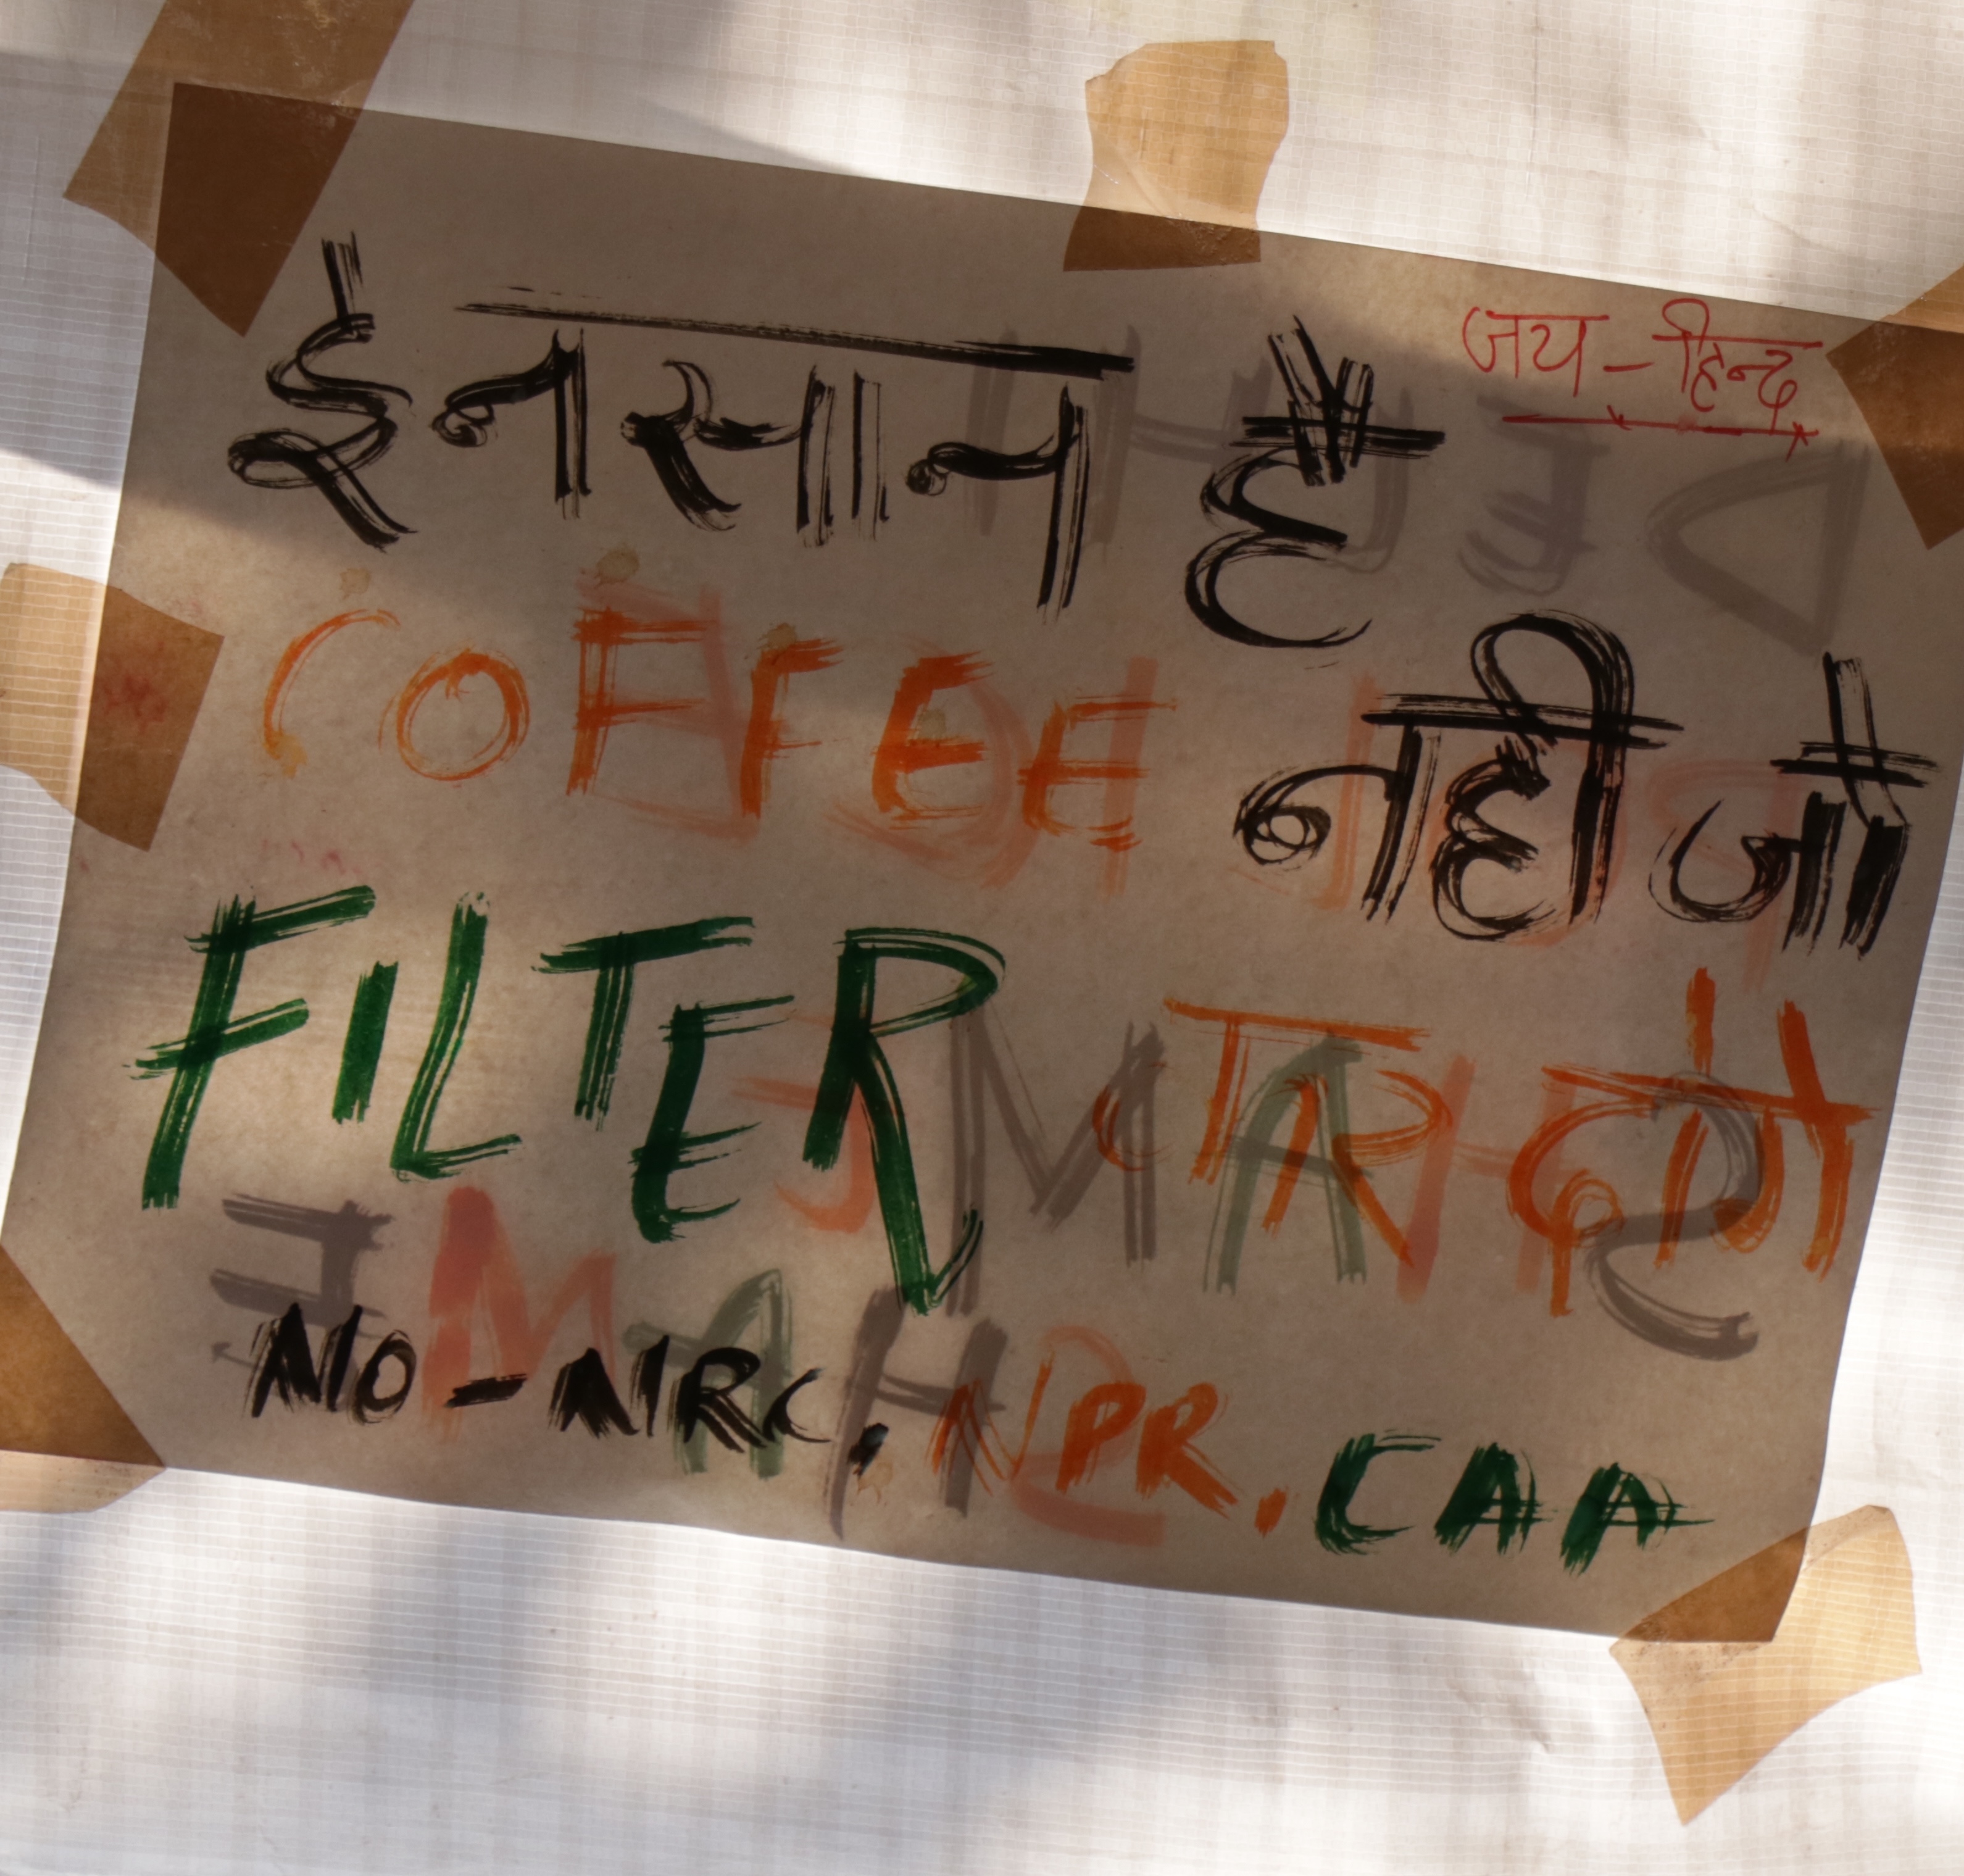 जय - हिन्द
ईनसान हैं
COFFEE नही जो
FILTER कर दोगे
NO - NRC, NPR, CAA